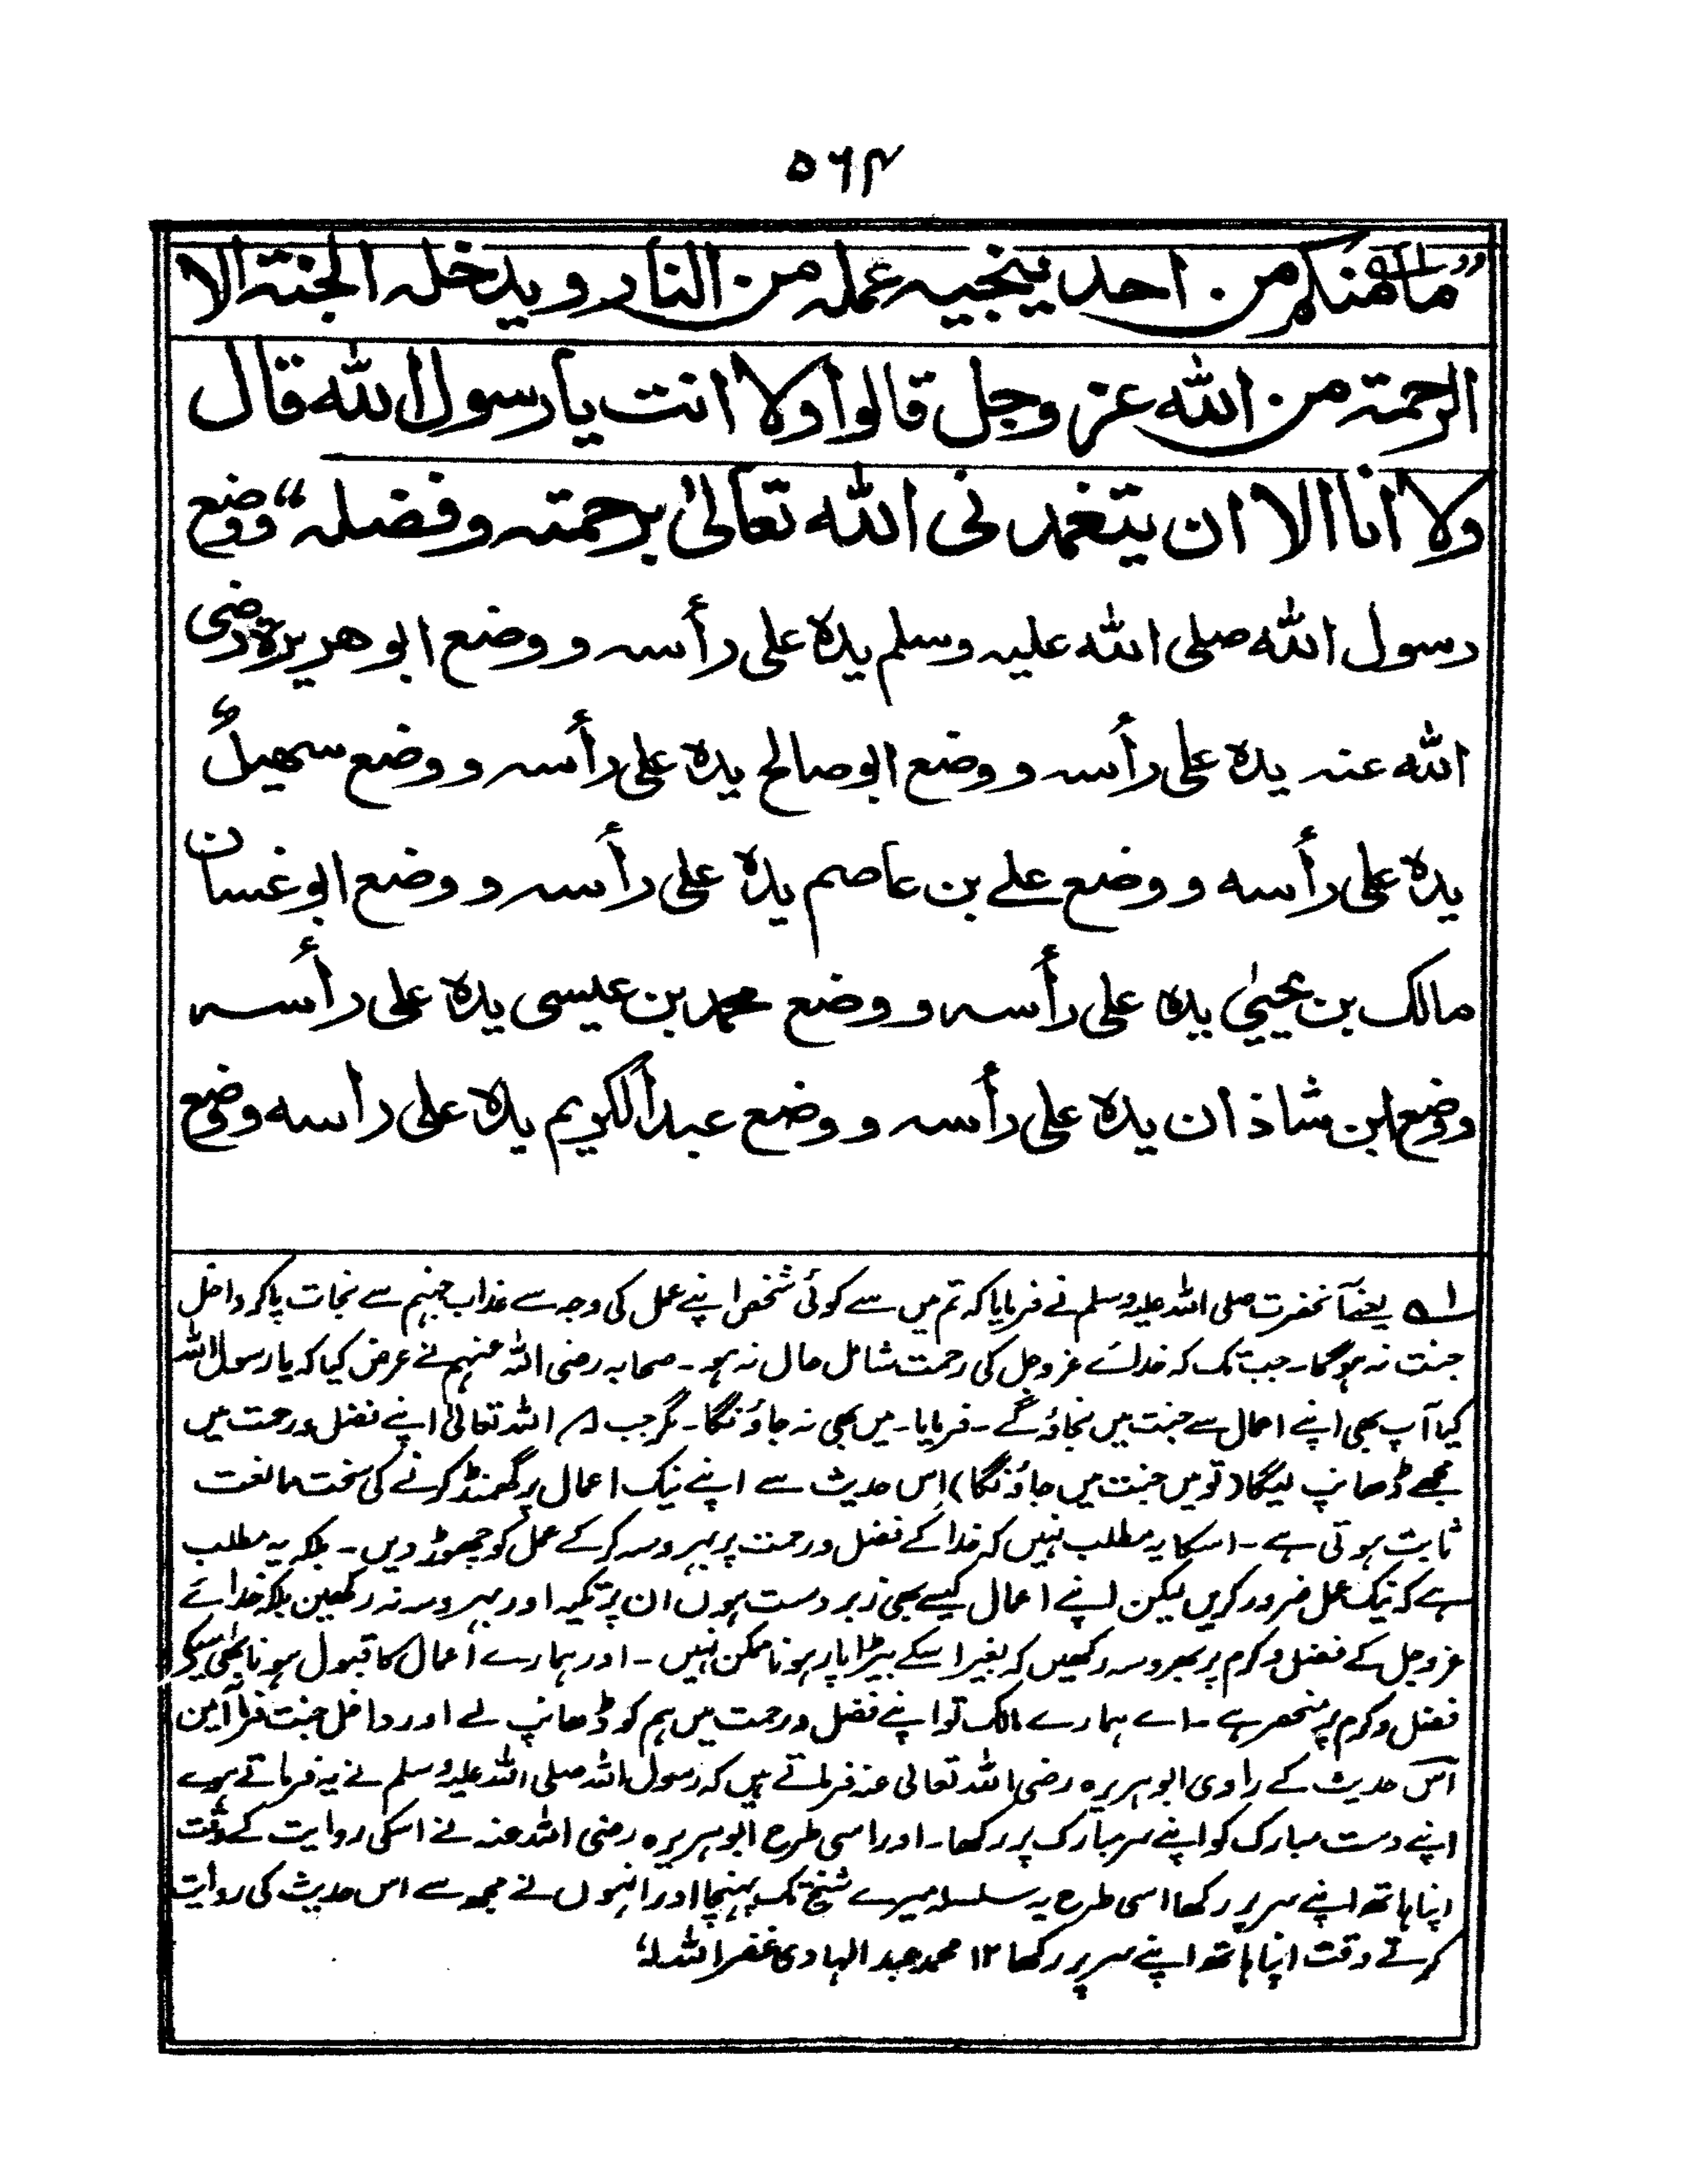 ۵۶۴
”ما منکم من احد ینجیه عمله من النار و یدخله الجنة الا
الرحمة من الله عز وجل قالوا ولا انت یا رسول الله قال
ولا انا الا ان یتغمدنی الله تعالیٰ برحمته وفضله“ ووضع
رسول الله صلی الله علیه وسلم یده علی رأسه و وضع ابو هریرة رضی
الله عنه یده علی رأسه و وضع ابو صالح یده علی رأسه و وضع سهیل
یده علی رأسه و وضع علے بن عاصم یده علی رأسه و وضع ابو غسان
مالک بن یحییٰ یده علی رأسه و وضع محمد بن عیسی یده علی رأسه
ووضع ابن شاذان یده علی رأسه و وضع عبد الکریم یده علی رأسه ووضع
۱؎ یعنے آنحضرت صلی اللہ علیہ وسلم نے فرمایا کہ تم میں سے کوئی شخص اپنے عمل کی وجہ سے عذاب جہنم سے نجات پا کر داخل
جنت نہ ہوگا۔ جب تک کہ خدائے عز وجل کی رحمت شامل حال نہ ہو۔ صحابہ رضی اللہ عنہم نے عرض کیا کہ یا رسول اللہ
کیا آپ بھی اپنے اعمال سے جنت میں نجاؤ گے۔ فرمایا۔ میں بھی نہ جاؤنگا۔ مگر جب اللہ تعالیٰ اپنے فضل ورحمت میں
مجھے ڈھانپ لیگا (تو میں جنت میں جاؤنگا) اس حدیث سے اپنے نیک اعمال پر گھمنڈ کرنے کی سخت ممانعت
ثابت ہوتی ہے۔ اسکا یہ مطلب نہیں کہ خدا کے فضل ورحمت پر بہروسہ کر کے عمل کو چھوڑ دیں۔ بلکہ یہ مطلب
ہے کہ نیک عمل ضرور کریں لیکن اپنے اعمال کیسے بھی زبردست ہوں ان پر تکیہ اور بہروسہ نہ رکھین بلکہ خدائے
عز وجل کے فضل وکرم پر بھروسہ رکھیں کہ بغیر اسکے بیڑا پار ہونا ممکن نہیں۔ اور ہمارے اعمال کا قبول ہونا بھی اسیکے
فضل وکرم پر منحصر ہے۔ اے ہمارے مالک تو اپنے فضل ورحمت میں ہم کو ڈھانپ لے اور داخل جنت فرما آمین
اس حدیث کے راوی ابو ہریرہ رضی اللہ تعالی عنہ فرماتے ہیں کہ رسول اللہ صلی اللہ علیہ وسلم نے یہ فرماتے ہوے
اپنے دست مبارک کو اپنے سر مبارک پر رکھا۔ اور اسی طرح ابو ہریرہ رضی اللہ عنہ نے اسکی روایت کے وقت
اپنا ہاتھ اپنے سر پر رکھا اسی طرح یہ سلسلہ میرے شیخ تک پہنچا اور انہوں نے مجھ سے اس حدیث کی روایت
کرتے وقت اپنا ہاتھ اپنے سر پر رکھا ۱۲ محمد عبد الہادی غفر اللہ لہ؛